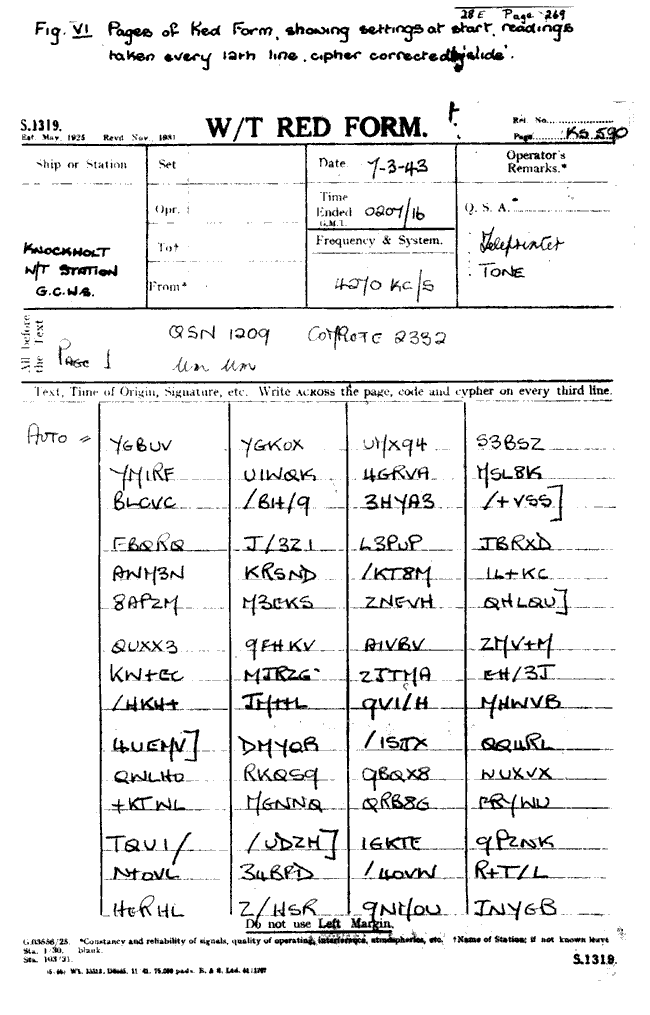 28E Page 269
Fig. VI Pages of Red Form, showing settings at start, readings
taken every 12th line, cipher corrected by 'slide'.
S.1319.
Est. May. 1925 Revd Nov. 1931
W/T RED FORM.
Ref. No.
Page KS 590
Ship or Station
Set
Date 7-3-43
Operator's
Remarks.*
Opr.
Time
Ended 0207/16
G.M.T.
Q. S. A.*
KNOCKHOLT
W/T STATION
G.C.W.S.
To†
Frequency & System.
Teleprinter
TONE
From*
4270 KC/S
All before
the Text
QSN 1209
2332
PAGE 1
um um
Text, Time of Origin, Signature, etc. Write ACROSS the page, code and cypher on every third line.
AUTO =
YGBUV YGKOX UMX94 S3BSZ
YM1RF U1WQK 4GRVA MSL8K
BLCVC /BH/9 3HYA3 /+VSS]
FBQRQ J/3Z1 L3PUP JBRXD
AWM3N KRSND /KT8M IL+KC
8APZM M3EKS ZNEVH QHLQU]
QUXX3 9FHKV A1VBV ZMV+M
KW+EC MJRZG ZJTMA EH/3J
/HKH+ JM+HL 9V1/H MHWVB
4UEMV] DMYQB /1SJX QQ4RL
QWLHO RKQS9 9BQX8 WUXVX
+KTWL MGNNQ QRB8G PRYWU
TQU1/ /UDZM] 1GKTE 9PZNK
N+OVL 34BPD /4OVW R+T/L
HERHL Z/HSR 9NM/OU JNYGB
Do not use Left Margin.
G.03556/25. *Constancy and reliability of signals, quality of operating, interference, atmospherics, etc. †Name of Station; if not known leave
Sta. 1/30. blank.
Sta. 103/31.
S.1319.